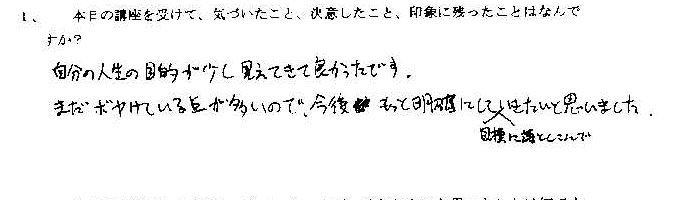 1、 本日の講座を受けて、気づいたこと、決意したこと、印象に残ったことはなんで
すか？
自分の人生の目的が少し見えてきて良かったです。
まだボヤけている点が多いので、今後もっと明確にしていきたいと思いました。
目標に落としこんで